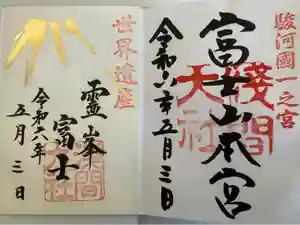 駿河國一之宮
富士山本宮
淺間大社
令和六年五月三日
世界遺産
霊峰
富士
令和六年
五月三日